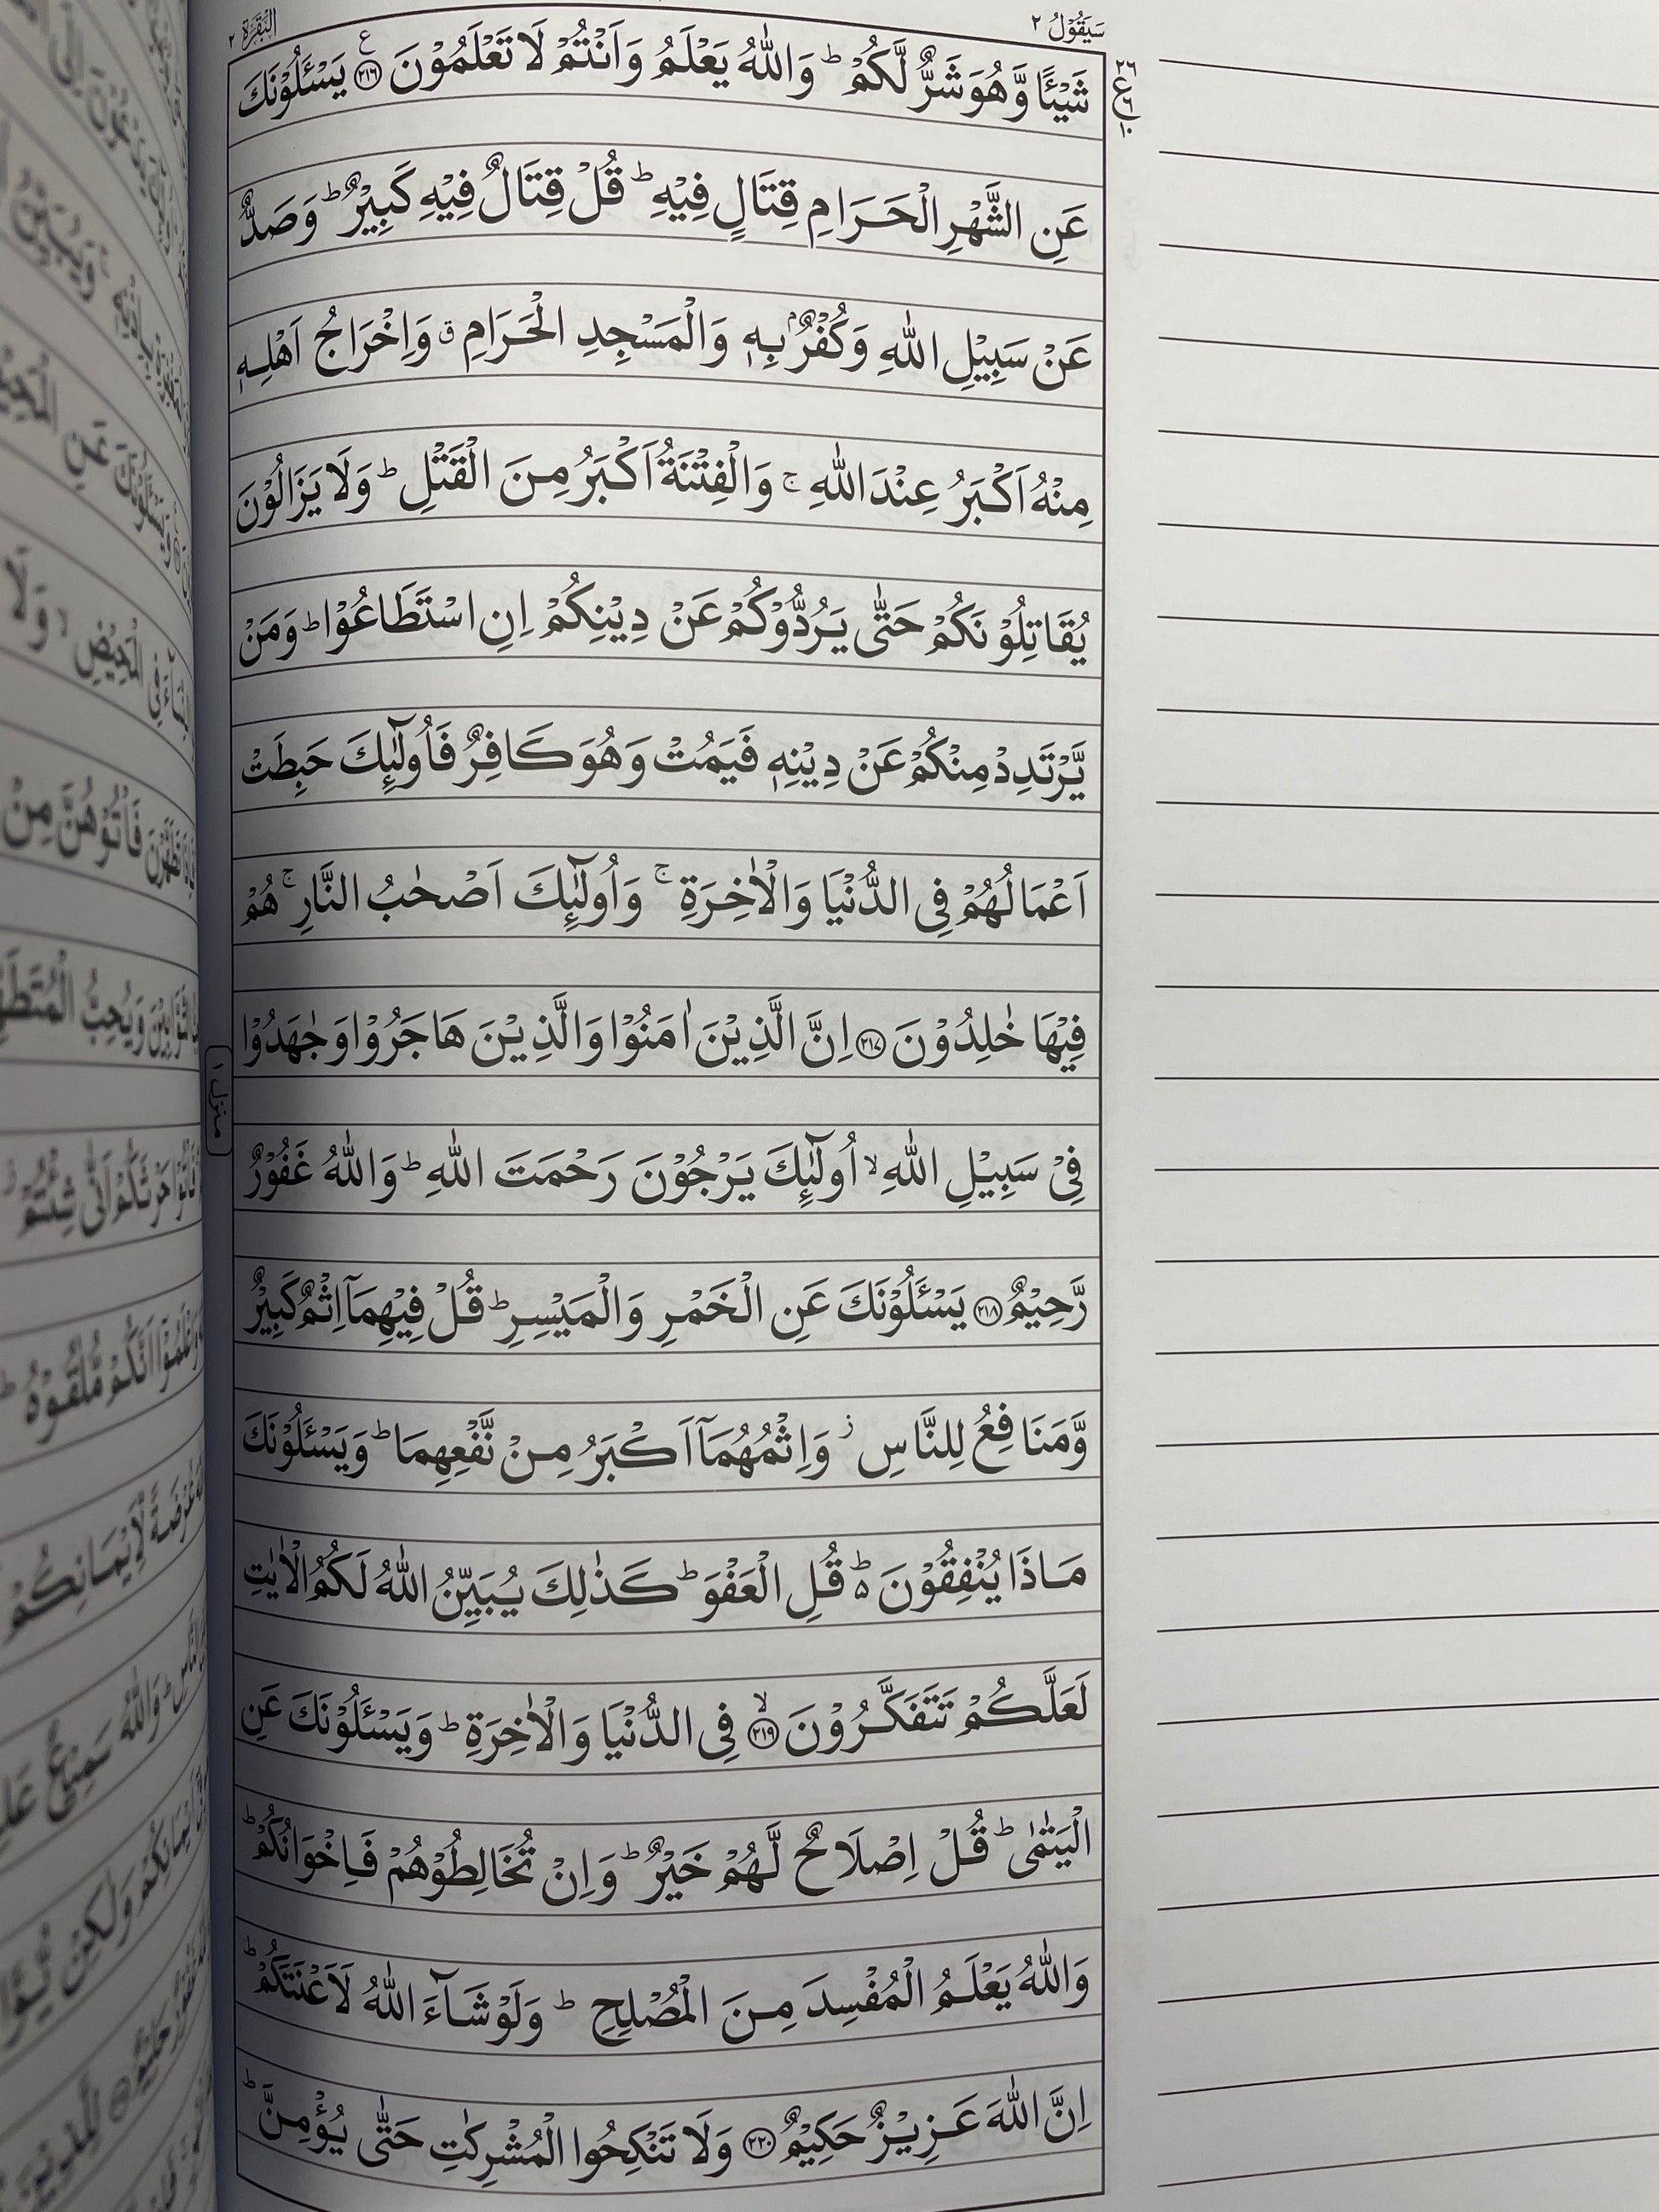 سَيَقُوْلُ ٢
اَلْبَقَرَة ٢
شَيْـًٔا وَّهُوَ شَرٌّ لَّكُمْ ؕ وَاللّٰهُ يَعْلَمُ وَاَنْتُمْ لَا تَعْلَمُوْنَ ﴿٢١٦﴾ ع يَسْـَٔلُوْنَكَ
٢٦ ع ٦ ١٠
عَنِ الشَّهْرِ الْحَرَامِ قِتَالٍ فِيْهِ ؕ قُلْ قِتَالٌ فِيْهِ كَبِيْرٌ ؕ وَصَدٌّ
عَنْ سَبِيْلِ اللّٰهِ وَكُفْرٌۢ بِهٖ وَالْمَسْجِدِ الْحَرَامِ ق وَاِخْرَاجُ اَهْلِهٖ
مِنْهُ اَكْبَرُ عِنْدَ اللّٰهِ ۚ وَالْفِتْنَةُ اَكْبَرُ مِنَ الْقَتْلِ ؕ وَلَا يَزَالُوْنَ
يُقَاتِلُوْنَكُمْ حَتّٰى يَرُدُّوْكُمْ عَنْ دِيْنِكُمْ اِنِ اسْتَطَاعُوْا ؕ وَمَنْ
يَّرْتَدِدْ مِنْكُمْ عَنْ دِيْنِهٖ فَيَمُتْ وَهُوَ كَافِرٌ فَاُولٰٓئِكَ حَبِطَتْ
اَعْمَالُهُمْ فِى الدُّنْيَا وَالْاٰخِرَةِ ۚ وَاُولٰٓئِكَ اَصْحٰبُ النَّارِ ۚ هُمْ
فِيْهَا خٰلِدُوْنَ ﴿٢١٧﴾ اِنَّ الَّذِيْنَ اٰمَنُوْا وَالَّذِيْنَ هَاجَرُوْا وَجٰهَدُوْا
فِيْ سَبِيْلِ اللّٰهِ ۙ اُولٰٓئِكَ يَرْجُوْنَ رَحْمَتَ اللّٰهِ ؕ وَاللّٰهُ غَفُوْرٌ
رَّحِيْمٌ ﴿٢١٨﴾ يَسْـَٔلُوْنَكَ عَنِ الْخَمْرِ وَالْمَيْسِرِ ؕ قُلْ فِيْهِمَاۤ اِثْمٌ كَبِيْرٌ
وَّمَنَافِعُ لِلنَّاسِ ز وَاِثْمُهُمَاۤ اَكْبَرُ مِنْ نَّفْعِهِمَا ؕ وَيَسْـَٔلُوْنَكَ
مَاذَا يُنْفِقُوْنَ ؕ قُلِ الْعَفْوَ ؕ كَذٰلِكَ يُبَيِّنُ اللّٰهُ لَكُمُ الْاٰيٰتِ
لَعَلَّكُمْ تَتَفَكَّرُوْنَ ۙ﴿٢١٩﴾ فِى الدُّنْيَا وَالْاٰخِرَةِ ؕ وَيَسْـَٔلُوْنَكَ عَنِ
الْيَتٰمٰى ؕ قُلْ اِصْلَاحٌ لَّهُمْ خَيْرٌ ؕ وَاِنْ تُخَالِطُوْهُمْ فَاِخْوَانُكُمْ ؕ
وَاللّٰهُ يَعْلَمُ الْمُفْسِدَ مِنَ الْمُصْلِحِ ؕ وَلَوْ شَآءَ اللّٰهُ لَاَعْنَتَكُمْ ؕ
اِنَّ اللّٰهَ عَزِيْزٌ حَكِيْمٌ ﴿٢٢٠﴾ وَلَا تَنْكِحُوا الْمُشْرِكٰتِ حَتّٰى يُؤْمِنَّ ؕ
منزل ١